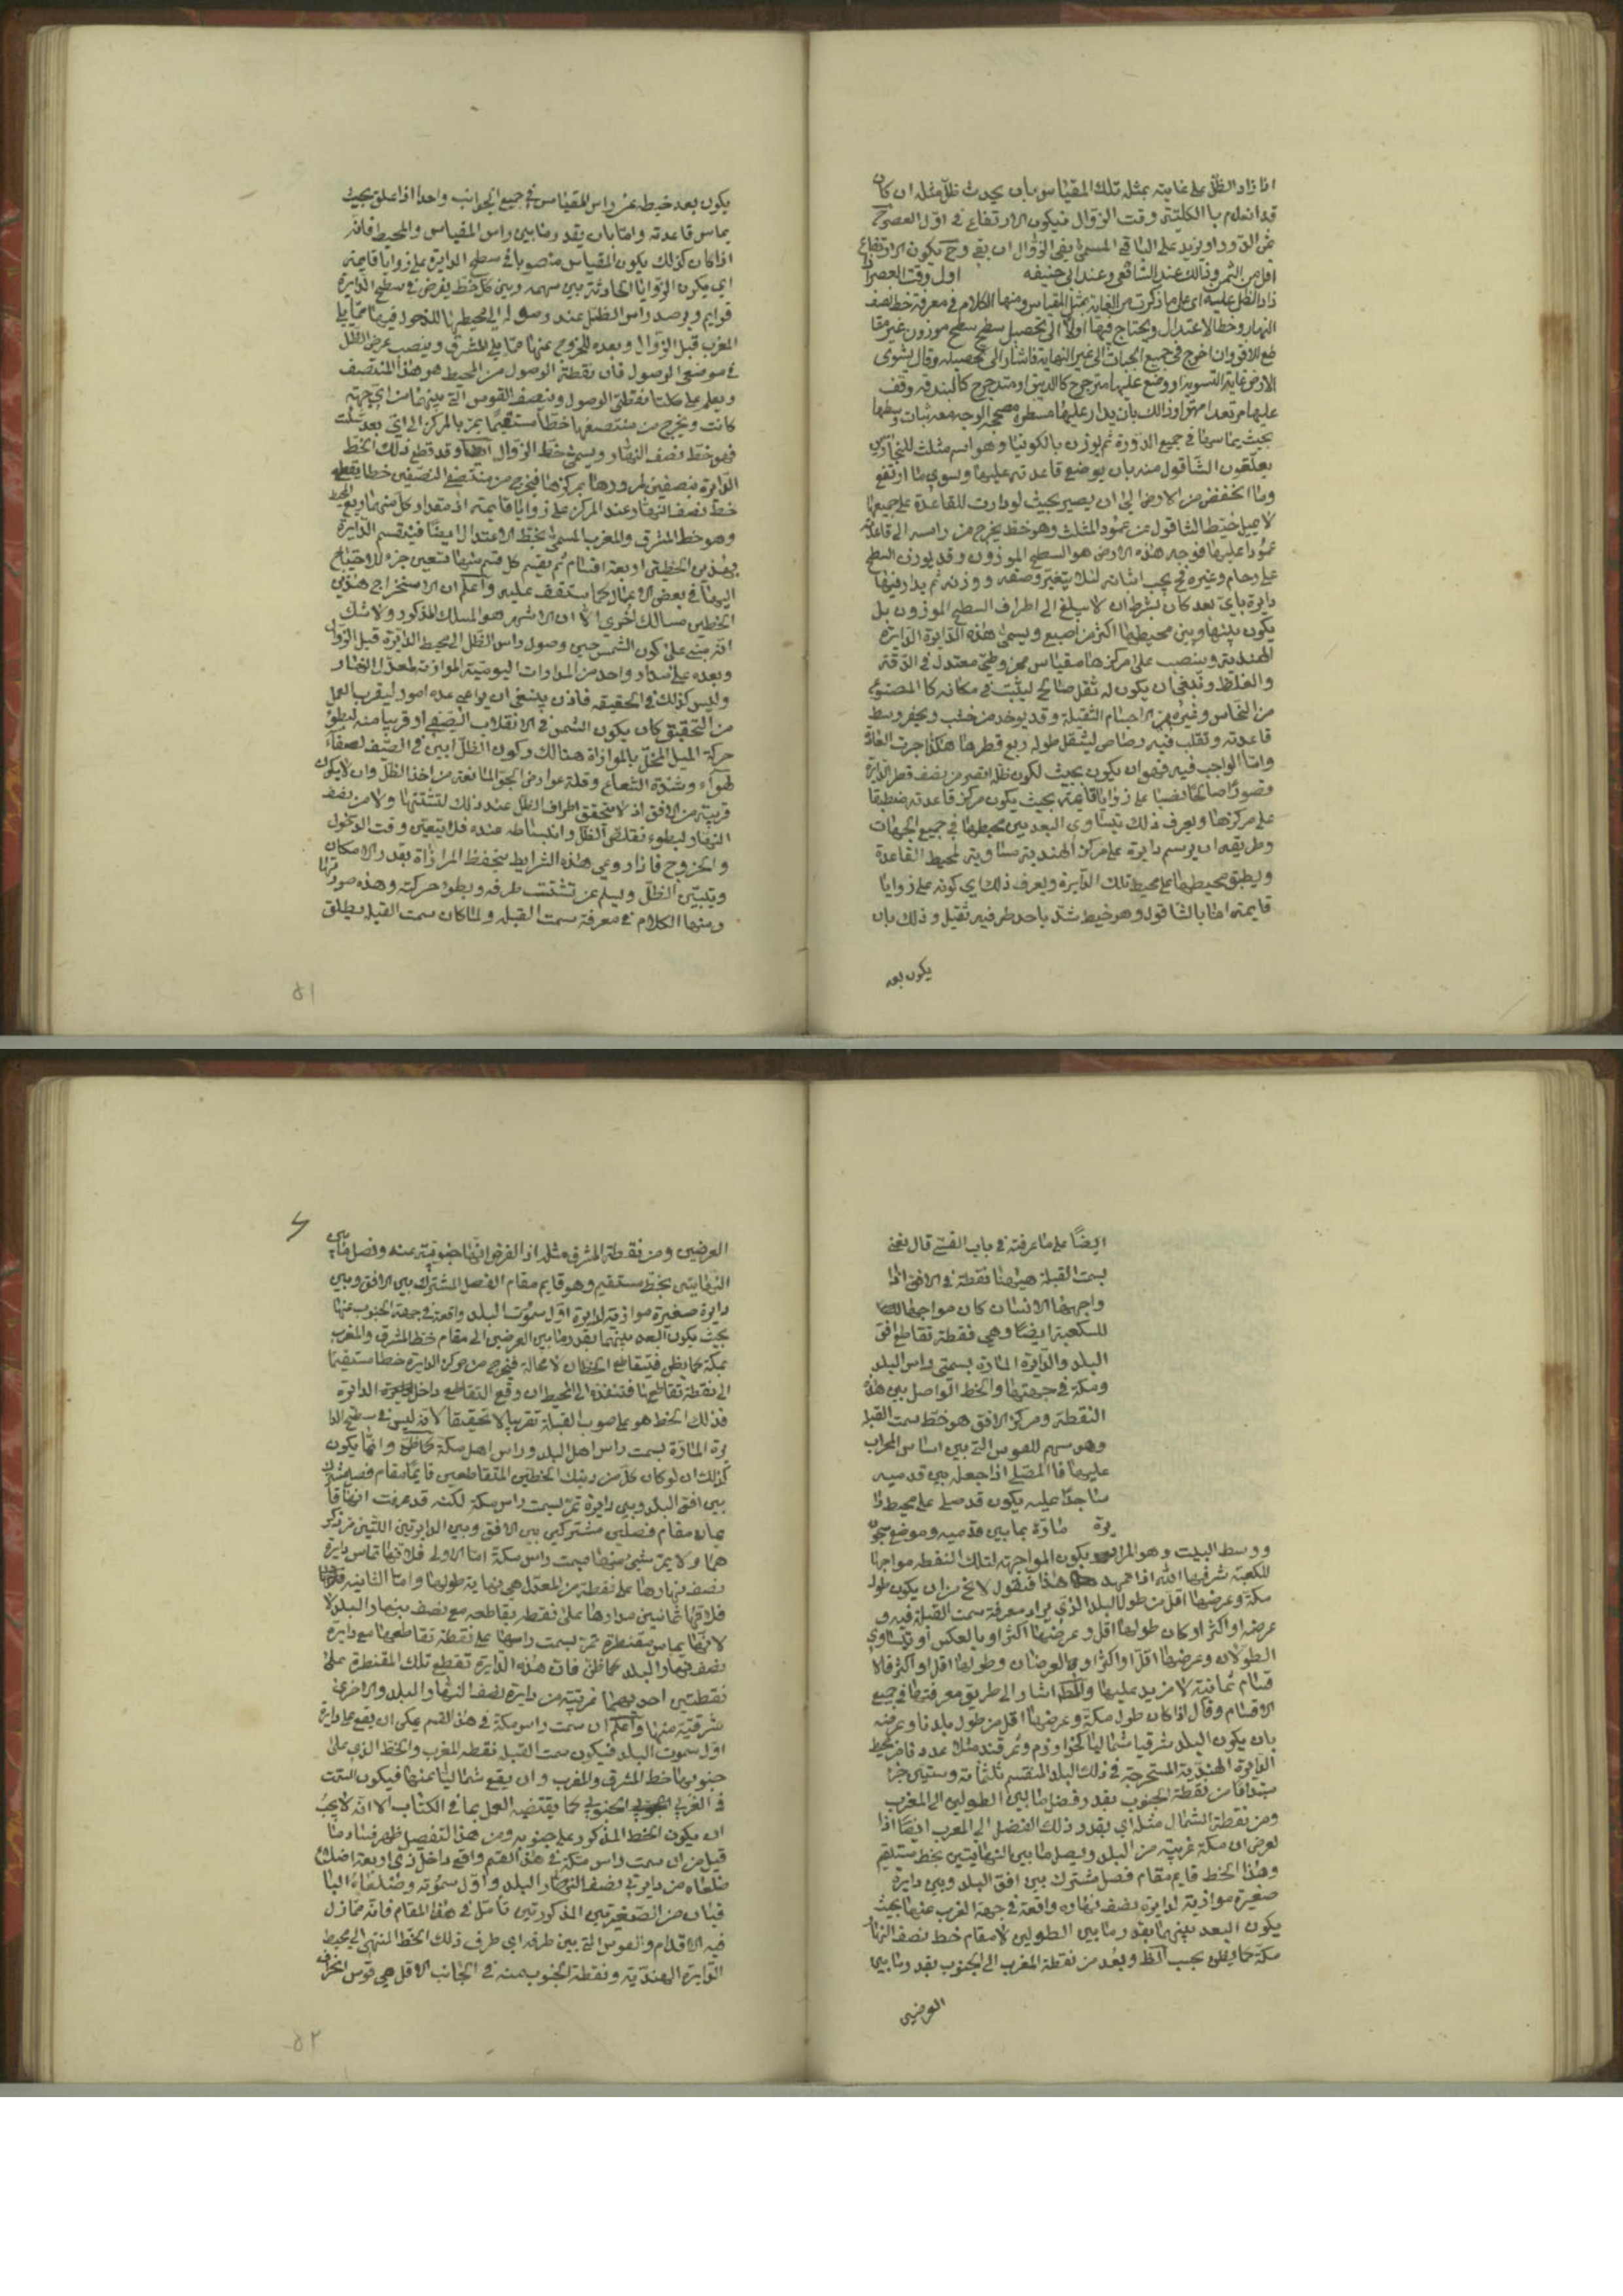 اذا زاد الظل على غايته بمثله تلك المقياس بان يحدث ظل مثله ان كان
قد انعدم بالكلية في وقت الزوال فيكون الارتفاع في اول العصر ح
ثمن الدور او يزيد على الباقي المسمى بفي الزوال ان بقي وح يكون الارتفاع
اقل من الثمن وذالك عند الشافعي وعند ابي حنيفه اول وقت العصر اذا
زاد الظل عليه اى على ما ذكرت من الغاية بمثلي المقياس ومنها الكلام في معرفة خط نصف
النهار وخط الاعتدال ويحتاج فيها اولا الى تحصيل سطح موزون غير مقا
طع للافق وان اخرج في جميع الجهات الى غير النهاية فاشار الى تحصيله وقال يسوى
الارض غاية التسوية او وضع عليها مترجرج كالزيبق او متدحرج كالبندقة وقف
عليها مرتعدا مهتزا وذالك بان يدار عليها مسطرة مصححة الوجه مع ثبات وسطها
بحيث يماسها في جميع الدورة ثم يوزن بالكونيا وهو اسم مثلث للنجارين
يعلقون الشاقول منه بان يوضع قاعدته عليها ويسوى ما ارتفع
وما انخفض من الارض الى ان يصير بحيث لو دارت القاعدة على جميعها
لا يميل خيط الشاقول عن عمود المثلث وهو خط يخرج من راسه الى قاعدته
عمودا عليها فوجه هذه الارض هو السطح الموزون وقد يوزن السطح
على رخام وغيره فح يجب اثباته لئلا يتغير وصفه ووزنه ثم يدار فيها
دايرة باى بعد كان بشرط ان لا يبلغ الى اطراف السطح الموزون بل
يكون بينها وبين محيطها اكثر من اصبع ويسمى هذه الدايرة الدايرة
الهندية وينصب على مركزها مقياس مخروطي معتدل في الدقة
والغلظ وينبغي ان يكون له ثقل صالح ليثبت في مكانه كالمصنوع
من النحاس وغيره من الاجسام الثقيلة وقد يوخذ من خشب ويحفر وسط
قاعدته وتقلب فيه رصاص ليثقل طوله ربع قطرها هكذا جرت العادة
واما الواجب فيه فهو ان يكون بحيث يكون ظله اقصر من نصف قطر الدايرة
قصورا صالحا نصبا على زوايا قايمة بحيث يكون مركز قاعدته منطبقا
على مركزها ويعرف ذلك بتساوى البعد بين محيطها في جميع الجهات
وطريقه ان يرسم دايرة على مركز الهندية مساوية لمحيط القاعدة
ويطبق محيطها على محيط تلك الدايرة ويعرف ذلك اي كونه على زوايا
قايمة اما بالشاقول وهو خيط شد باحد طرفيه ثقيل وذلك بان
يكون بعد
يكون بعد خيطه عن راس المقياس في جميع الجوانب واحدا اذا علق بحيث
يماس قاعدته واما بان يقدر ما بين راس المقياس والمحيط فانه
اذا كان كذلك يكون المقياس منصوبا في سطح الدايرة على زوايا قايمة
اي يكون الزوايا الحادثة بين سهمه وبين كل خط يفرض في سطح الدايرة
قوايم ويرصد راس الظل عند وصوله الى محيطها للدخول فيها مما يلي
المغرب قبل الزوال وبعده للخروج عنها مما يلي المشرق وينصف عرض الظل
في موضعي الوصول فان نقطة الوصول من المحيط هو هذا المنتصف
ويعلم على كلتا نقطتي الوصول وينصف القوس التي بينهما من اي جهة
كانت ويخرج من منتصفها خطا مستقيما يمر بالمركز الى اي بعد شئت
فهو خط نصف النهار ويسمى خط الزوال ايضا وقد قطع ذلك الخط
الدايرة بنصفين لمرورها بمركزها فيخرج من منتصف النصفين خطا يقطع
خط نصف النهار عند المركز على زوايا قايمة اذ مقدار كل منهما ربع المحيط
وهو خط المشرق والمغرب المسمى بخط الاعتدال ايضا فينقسم الدايرة
بهذين الخطين اربعة اقسام ثم يقسم كل قسم منها تسعين جزء للاحتياج
اليها في بعض الاعمال كما ستقف عليه واعلم ان لاستخراج هذين
الخطين مسالك اخرى الا ان الاشهر هو المسلك المذكور ولا شك
انه مبني على كون الشمس حين وصول راس الظل الى محيط الدايرة قبل الزوال
وبعده على مدار واحد من المدارات اليومية الموازية لمعدل النهار
وليس كذلك في الحقيقة فاذن ينبغي ان يراعى عدة امور ليقرب العمل
من التحقيق كان يكون الشمس في الانقلاب الصيفي او قريبا منه لبطؤ
حركة الميل المخل بالموازاة هنالك وكون الظل ابين في الصيف لصفاء
الهواء وشدة الشعاع وقلة عوارض الجو المانعة من اخذ الظل وان لا يكون
قريبة من الافق اذ لا يتحقق اطراف الظل عند ذلك لتشتتها ولا من نصف
النهار لبطوء تقلص الظل وانبساطه عنده فلا يتعين وقت الدخول
والخروج فاذا روعي هذه الشرايط يتحفظ الموازاة بقدر الامكان
ويتبين الظل ويسلم عن تشتت طرفه وبطؤ حركته وهذه صورتها
ومنها الكلام في معرفة سمت القبلة ولما كان سمت القبلة يطلق
٥١
ايضا على ما عرفته في باب القسي قال نعني
بسمت القبلة هيهنا نقطة في الافق اذا
واجهها الانسان كان مواجها
للكعبة ايضا وهي نقطة تقاطع افق
البلد والدايرة المارة بسمتي راس البلد
ومكة في جهتها والخط الواصل بين هذه
النقطة ومركز الافق هو خط سمت القبلة
وهو سهم للقوس التي بني اساس المحراب
عليها فالمصلي اذا جعله بين قدميه
ساجدا عليه يكون قد صلى على محيط دا
يرة مارة بما بين قدميه وموضع سجوده
ووسط البيت وهو المراد بكون المواجهة لتلك النقطة مواجها
للكعبة شرفها الله اذا تمهد هذا فنقول لا يخ من ان يكون طول
مكة وعرضها اقل من طول البلد الذي يراد معرفة سمت القبلة فيه و
عرضه او اكثر او كان طولها اقل وعرضها اكثر او بالعكس او يتساوى
الطولان وعرضها اقل او اكثر او العرضان وطولها اقل او اكثر فالا
قسام ثمانية لا مزيد عليها والمصنف اشار الى طريق معرفتها في جميع
الاقسام وقال اذا كان طول مكة وعرضها اقل من طول بلدنا وعرضه
بان يكون البلد شرقيا شماليا كخوارزم وسمرقند مثلا عددنا من محيط
الدايرة الهندية المستخرجة في ذلك البلد المنقسم بثلثماية وستين جزا
مبتدأ من نقطة الجنوب بقدر فضل ما بين الطولين الى المغرب
ومن نقطة الشمال مثله اي بقدر ذلك الفضل الى المغرب ايضا اذا
لفرض ان مكة غربية من البلد ويصل ما بين النهايتين بخط مستقيم
وهذا الخط قايم مقام فصل مشترك بين افق البلد وبين دايرة
صغيرة موازية لدايرة نصف نهاره واقعة في جهة الغرب عنها بحيث
يكون البعد بينهما بقدر ما بين الطولين لا مقام خط نصف النهار
مكة كما يظن بحسب الظ ويعد من نقطة المغرب الى الجنوب بقدر ما بين
العرضين
العرضين ومن نقطة المشرق مثله اذ الفرض انها جنوبية عنه ونصل ما بين
النهايتين بخط مستقيم وهو قايم مقام الفصل المشترك بين الافق وبين
دايرة صغيرة موازية لدايرة اول سموت البلد واقعة في جهة الجنوب عنها
بحيث يكون البعد بينهما بقدر ما بين العرضين الى مقام خط المشرق والمغرب
بمكة كما يظن فيتقاطع الخطان لا محالة فيخرج من مركز الدايرة خطا مستقيما
الى نقطة تقاطعهما فننفذه الى المحيط ان وقع التقاطع داخل الدائرة
فذلك الخط هو على صوب القبلة تقريبا لا تحقيقا لانه ليس في سطح الدا
يرة المارة بسمت راس اهل البلد وراس اهل مكة كما ظن وانما يكون
كذلك ان لو كان كل من ذينك الخطين المتقاطعين قايما مقام فصل مشترك
بين افق البلد وبين دايرة تمر بسمت راس مكة لكنه قد عرفت انهما قا
يمان مقام فصلين مشتركين بين الافق وبين الدايرتين اللتين مر ذكر
هما ولا يمر شيء منهما بسمت راس مكة اما الاولى فلانها تماس دايرة
نصف نهارها على نقطة من المعدل هي نهاية طولها واما الثانيه
فلانها يماس مدارها على نقطة يقاطعه مع نصف نهار البلد لا
لانها يماس مقنطرة تمر بسمت راسها على نقطة تقاطعها مع دايرة
نصف نهار البلد كما ظن فان هذه الدايرة تقطع تلك المقنطرة على
نقطتين احديهما غربية من دايرة نصف النهار البلد والاخرى
شرقية منها واعلم ان سمت راس مكة في هذا القسم يمكن ان يقع على دايرة
اول سموت البلد فيكون سمت القبلة نقطة المغرب والخط الذي على
جنوبها خط المشرق والمغرب وان يقع شماليا عنها فيكون السمت
في الغربي الجنوبي كما يقتضيه العمل بما في الكتاب الا انه لا يجب
ان يكون الخط المذكور على جنوبه ومن هذا التفصيل ظهر فساد ما
قيل من ان سمت راس مكة في هذا القسم واقع داخل ذي اربعة اضلاع
ضلعاه من دايرتي نصف النهار البلد واول سموته وضلعاه البا
قيان من الصغيرتين المذكورتين تأمل في هذا المقام فانه مما زل
فيه الاقدام والقوس التي بين طرفه اي طرف ذلك الخط المنتهى الى محيط
الدايرة الهندية ونقطة الجنوب منه في الجانب الاقل هي قوس انحراف
٥٢